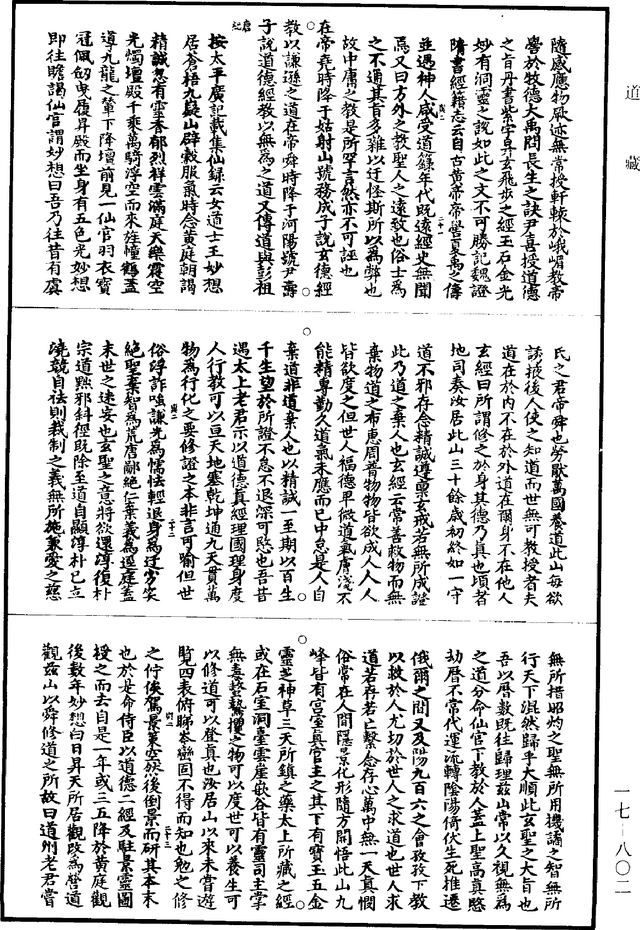 道藏
隨感應物厥迹無常授軒轅於峨嵋教帝
嚳於牧德大禹問長生之訣尹喜授道德
之旨丹書紫字昇玄飛步之經玉石金光
妙有洞靈之說如此之文不可勝記魏證
隋書經籍志云自古黃帝帝嚳夏禹之儔
並遇神人咸受道籙年代既遠經史無聞
焉又曰方外之教聖人之遠致也俗士為
之不通其旨多雜以迂怪斯所以為弊也
故中庸之教是所罕言然亦不可誣也
在帝堯時降于姑射山號務成子說玄德經
教以謙遜之道在帝舜時降于河陽號尹壽
子說道德經教以無為之道又傳道與彭祖
按太平廣記載集仙錄云女道士王妙想
居蒼梧九嶷山辟穀服氣時念黃庭朝謁
精誠忽有靈香郁烈祥雲滿庭天樂震空
光燭壇殿千乘萬騎浮空而來旌幢鶴蓋
導九龍之輦下降壇前見一仙官羽衣寶
冠佩劒曳履昇殿而坐身有五色光妙想
即往瞻謁仙官謂妙想曰吾乃往昔有虞
氏之君帝舜也勞厭萬國養道此山每欲
誘掖後人使之知道而世無可教授者夫
道在於內不在於外道在爾身不在他人
玄經曰所謂修之於身其德乃真也頃者
地司奏汝居此山三十餘歲初終如一守
道不邪存念精誠遵稟玄戒若無所成證
此乃道之棄人也玄經云常善救物而無
棄物道之布惠周普物物皆欲成人人人
皆欲度之但世人福德卑微道氣膚淺不
能精專勤久道氣未應而已中怠是人自
棄道非道棄人也以精誠一至期以百生
千生望於所證不怠不退深可愍也吾昔
遇太上老君示以道德真經理國理身度
人行教可以亘天地塞乾坤通九天貫萬
物為行化之要修證之本非言可喻但世
俗浮詐嗤謙光為懦怯輕退身為迂劣笑
絕聖棄智為荒唐鄙絕仁棄義為逕庭蓋
末世之迷妄也玄聖之意將欲還淳復朴
宗道黜邪斜徑既除至道自顯淳朴已立
澆競自祛則裁制之義無所施兼愛之慈
無所措昭灼之聖無所用機譎之智無所
行天下混然歸乎大順此玄聖之大旨也
吾以曆數既往歸理茲山常以久視無為
之道分命仙官下教於人蓋上聖高真愍
劫曆不常代運流轉陰陽倚伏生死推遷
俄爾之間又及陽九百六之會孜孜下教
以救於人尤切於世人之求道也世人求
道若存若亡繫念存心萬中無一天真憫
俗常在人間隱景化形隨方開悟此山九
峰皆有宮室真官主之其下有寶玉五金
靈芝神草三天所鎮之藥太上所藏之經
或在石室洞臺雲崖嵌谷皆有靈司主掌
無毒螫鷙攫之物可以度世可以養生可
以修道可以登真也汝居山以來未嘗遊
覽四表俯睇岑巒固不得而知也勉之修
之佇俟駕景策空然後倒景而研其本末
也於是命侍臣以道德二經及駐景靈圖
授之而去自是一年或三五降於黃庭觀
後數年妙想白日昇天所居觀改為營道
觀茲山以舜修道之所故曰道州老君嘗
一七-八〇二